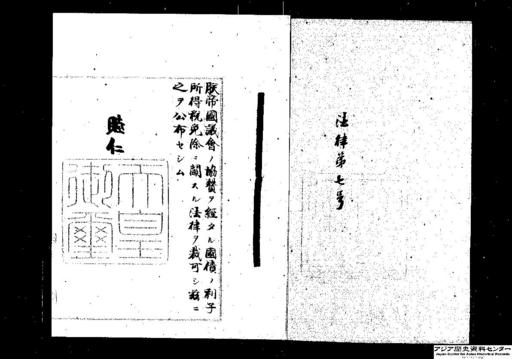 法律第七号
朕帝國議會ノ協賛ヲ經タル國債ノ利子
所得税免除ニ關スル法律ヲ裁可シ茲ニ
之ヲ公布セシム
睦仁
天皇
御璽
アジア歴史資料センター
Japan Center for Asian Historical Records